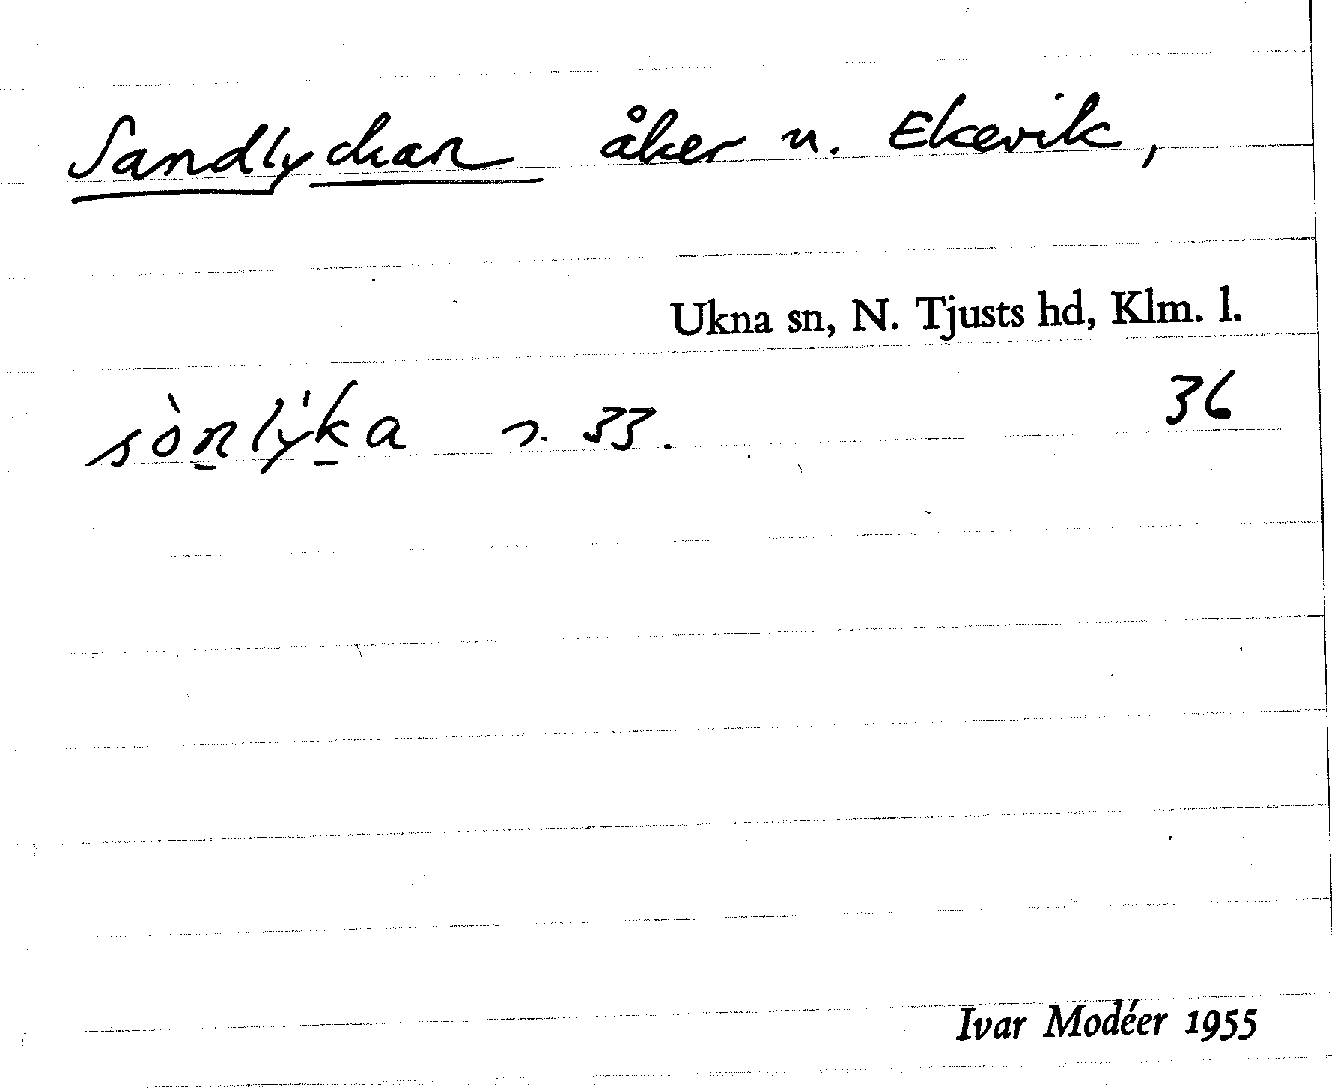 Sandlyckan åker u. Ekevik,
Ukna sn, N. Tjusts hd, Klm. l.
36
sònlý̇ka s. 33.
Ivar Modéer 1955